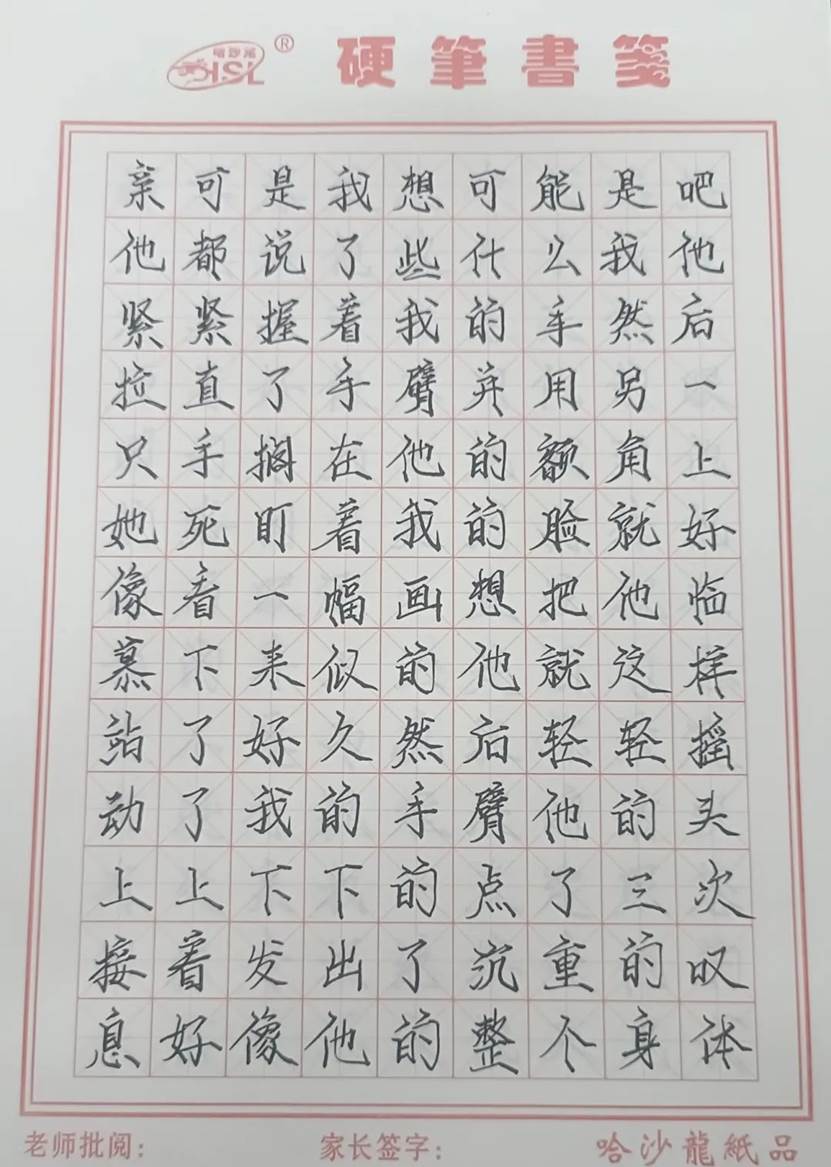 哈沙龙
HSL ® 硬筆書箋
亲可是我想可能是吧
他都说了些什么我他
紧紧握着我的手然后
拉直了手臂并用另一
只手搁在他的额角上
她死盯着我的脸就好
像看一幅画想把他临
慕下来似的他就这样
站了好久然后轻轻摇
动了我的手臂他的头
上上下下的点了三次
接着发出了沉重的叹
息好像他的整个身体
老师批阅： 家长签字： 哈沙龍紙品